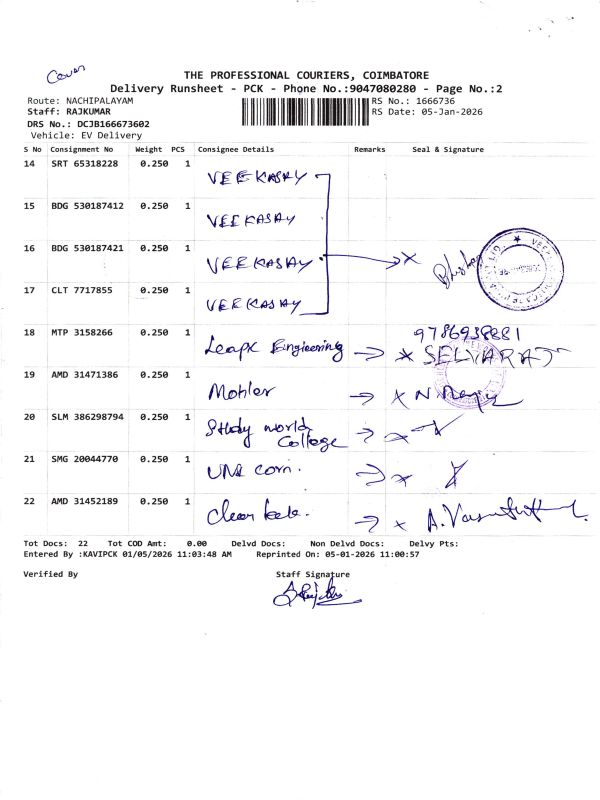 Cover
THE PROFESSIONAL COURIERS, COIMBATORE
Delivery Runsheet - PCK - Phone No.:9047080280 - Page No.:2
Route: NACHIPALAYAM RS No.: 1666736
Staff: RAJKUMAR RS Date: 05-Jan-2026
DRS No.: DCJB166673602
Vehicle: EV Delivery
S No Consignment No Weight PCS Consignee Details Remarks Seal & Signature
14 SRT 65318228 0.250 1 VEEKASAY
15 BDG 530187412 0.250 1 VEEKASAY
16 BDG 530187421 0.250 1 VEEKASAY
17 CLT 7717855 0.250 1 VEEKASAY
9786938881
18 MTP 3158266 0.250 1 Leapx Engineering SELVARAJ
19 AMD 31471386 0.250 1 Mohler
20 SLM 386298794 0.250 1 Study world
College
21 SMG 20044770 0.250 1 UNI corn.
22 AMD 31452189 0.250 1 Clear
Tot Docs: 22 Tot COD Amt: 0.00 Delvd Docs: Non Delvd Docs: Delvy Pts:
Entered By :KAVIPCK 01/05/2026 11:03:48 AM Reprinted On: 05-01-2026 11:00:57
Verified By Staff Signature